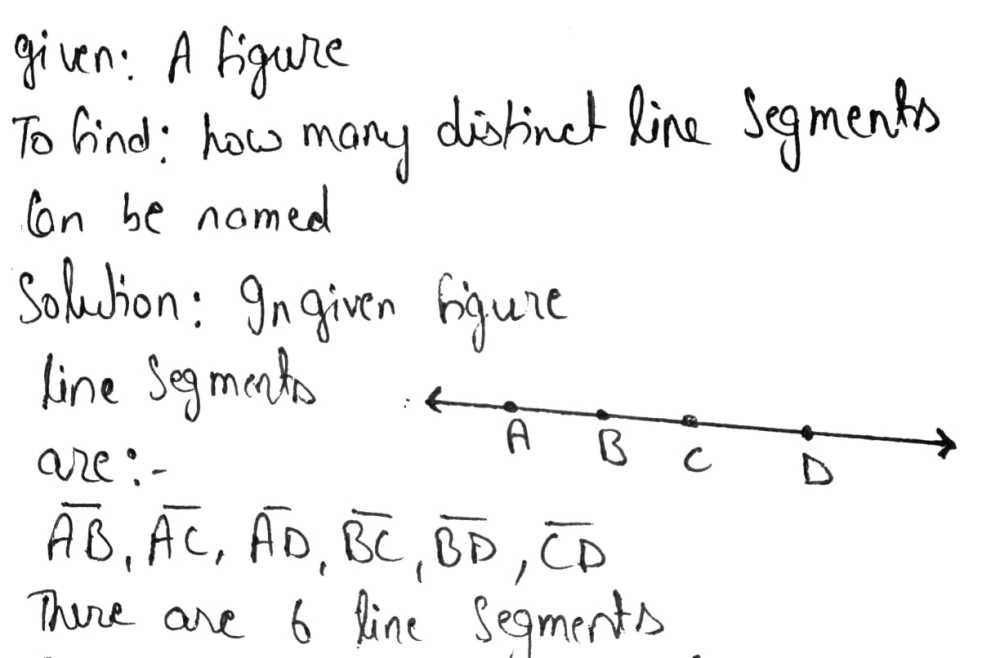 given: A figure
To find: how many distinct line segments
Can be named
Solution: In given figure
line segments
are:-
A B C D
A̅B̅, A̅C̅, A̅D̅, B̅C̅, B̅D̅, C̅D̅
There are 6 line segments